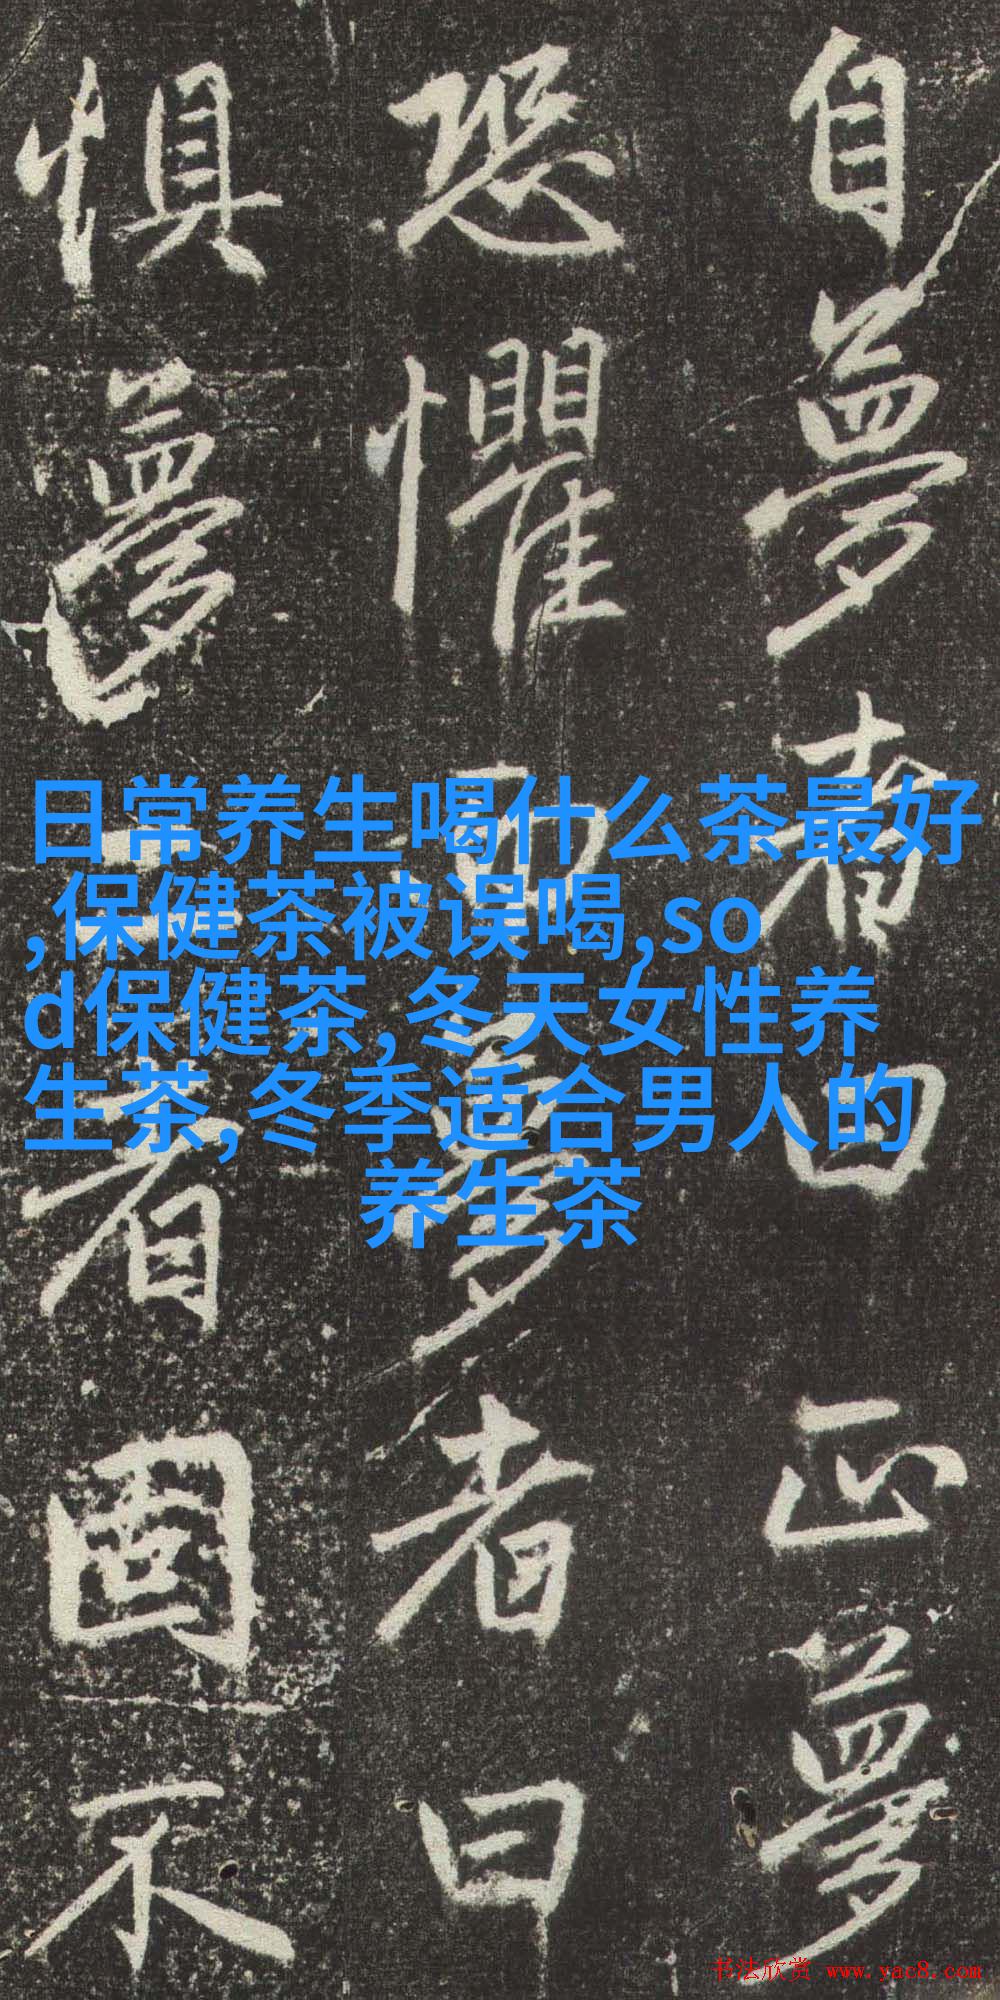 自夢者曰正夢
恐懼而夢者曰
惧夢二者固不
日常养生喝什么茶最好
,保健茶被误喝,so
d保健茶,冬天女性养
生茶,冬季适合男人的
养生茶
书法欣赏 www.yac8.com